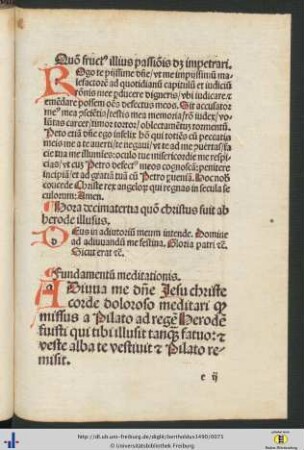 Quõ fruct⁹ illius passiõis dz impetrari.
ROgo te pijssime dñe / vt me impijssimũ ma-
lefactorẽ ad quotidianũ capitulũ et iudiciũ
rõnis mee pducere digneris / vbi iudicare et
emẽdare possem oẽs defectus meos. Sit accusator
me⁹ mea ꝯsciẽtia / testis mea memoria / rõ iudex / vo-
luptas carcer / timor tortor / oblectamẽtum tormentũ.
Peto etiã dñe ego infelix hõ qui totiẽs cũ peccatis
meis me a te auerti / te negaui / vt te ad me ꝯuertas / fa-
cie tua me illumines: oculo tue misericordie me respi-
cias / et cuz Petro defect⁹ meos cognoscã: penitere
incipiã / et ad gratiã tuã cũ Petro ꝑueniã. Hoc nob
concede Christe rex angelorꝝ qui regnas in secula se
culorum: Amen.
Hora decimatertia quõ christus fuit ab
herode illusus.
DEus in adiutoriũ meum intende. Domine
ad adiuuandũ me festina. Gloria patri ꝛc̃.
Sicut erat ꝛc̃.
Fundamentũ meditationis.
ADiuua me dñe Jesu christe
corde doloroso meditari ꝙ
missus a Pilato ad regẽ Herodẽ
fuisti qui tibi illusit tanꝗ fatuo: ⁊
veste alba te vestiuit ⁊ Pilato re-
misit.
e ij
http://dl.ub.uni-freiburg.de/diglit/bertholdus1490/0071
© Universitätsbibliothek Freiburg